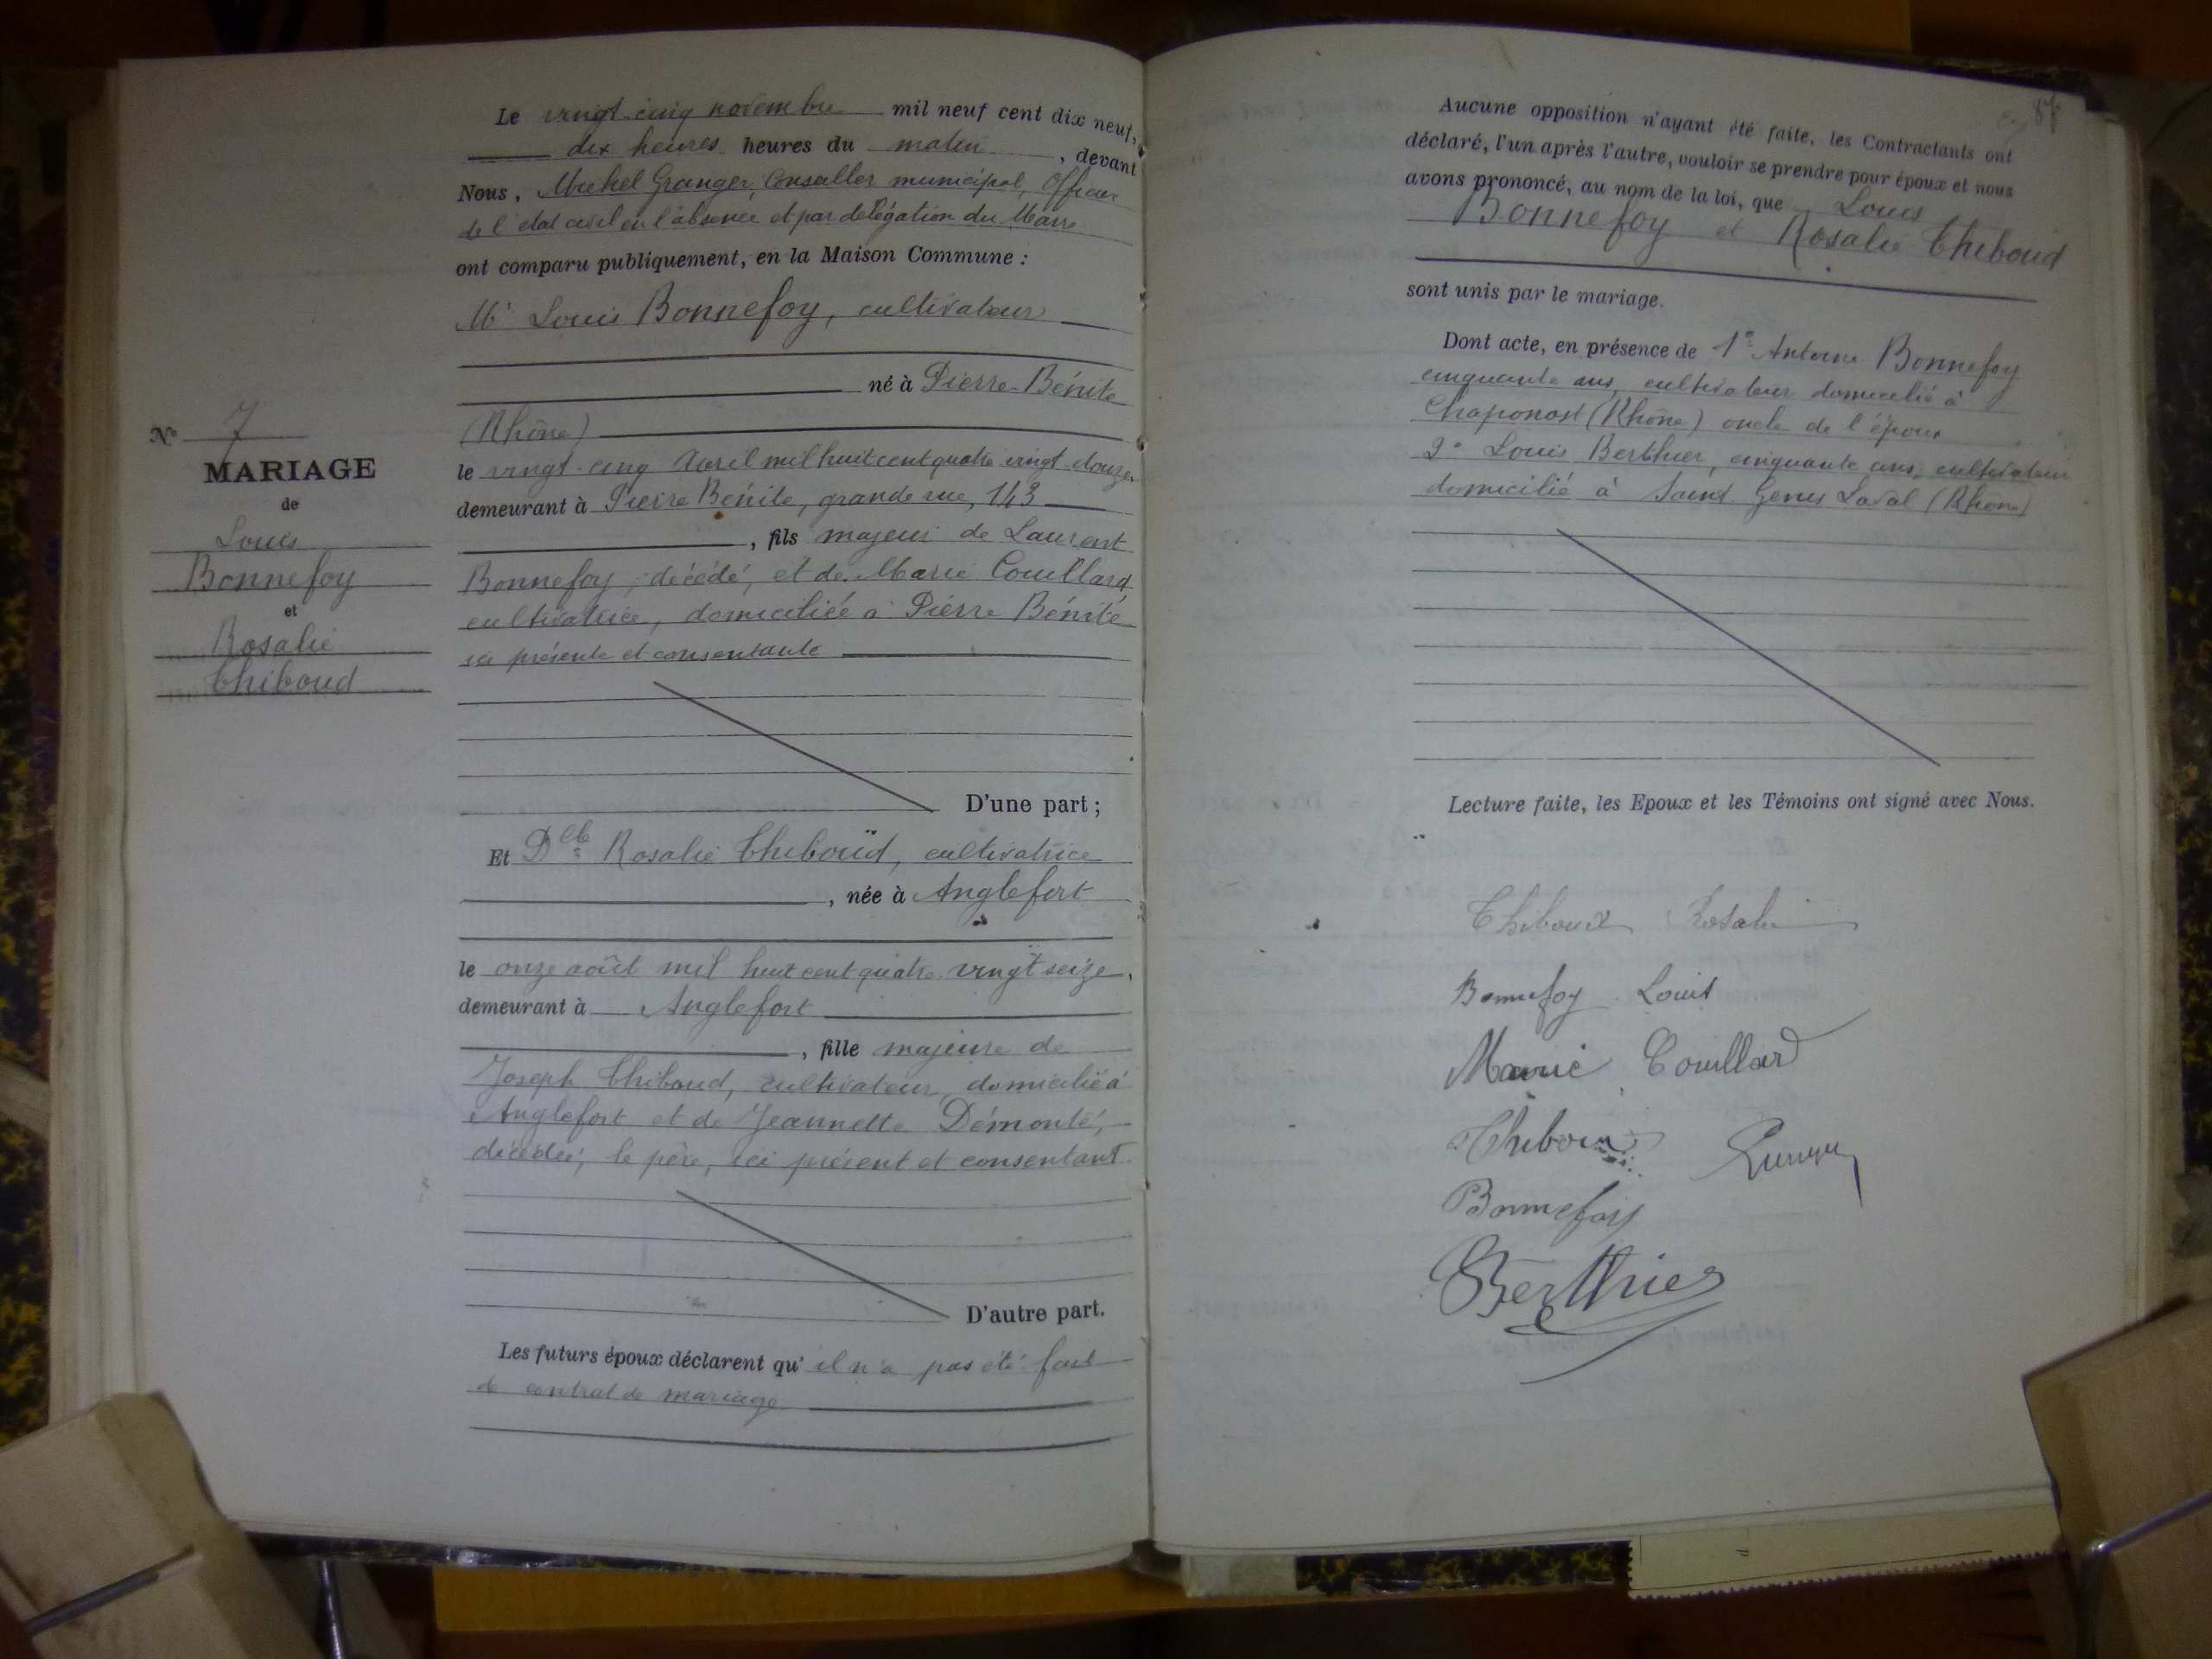 Le vingt-cinq novembre mil neuf cent dix neuf,
dix heures heures du matin, devant
Nous, Michel Granger, Conseiller municipal, Officier
de l'état civil en l'absence et par délégation du Maire
ont comparu publiquement, en la Maison Commune :
Mr Louis Bonnefoy, cultivateur
né à Pierre-Bénite
(Rhône)
le vingt-cinq Avril mil huit cent quatre vingt-douze,
demeurant à Pierre Bénite, grande rue, 143
, fils majeur de Laurent
Bonnefoy, décédé, et de Marie Couillard
cultivatrice, domiciliée à Pierre Bénite
ici présente et consentante
D'une part ;
Et Dlle Rosalie Thiboud, cultivatrice
, née à Anglefort
le onze août mil huit cent quatre-vingt seize,
demeurant à Anglefort
, fille majeure de
Joseph Thiboud, cultivateur, domicilié à
Anglefort et de Jeannette Démonté,
décédée, le père, ici présent et consentant
D'autre part.
Les futurs époux déclarent qu'il n'a pas été fait
de contrat de mariage
No 7
MARIAGE
de
Louis
Bonnefoy
et
Rosalie
Thiboud
87
Aucune opposition n'ayant été faite, les Contractants ont
déclaré, l'un après l'autre, vouloir se prendre pour époux et nous
avons prononcé, au nom de la loi, que Louis
Bonnefoy et Rosalie Thiboud
sont unis par le mariage.
Dont acte, en présence de 1° Antoine Bonnefoy
cinquante ans, cultivateur domicilié à
Chaponost (Rhône) oncle de l'époux
2° Louis Berthier, cinquante ans, cultivateur
domicilié à Saint Genis Laval (Rhône)
Lecture faite, les Epoux et les Témoins ont signé avec Nous.
Thiboud Rosalie
Bonnefoy Louis
Marie Couillard
Thiboud
Bonnefoy
Berthier